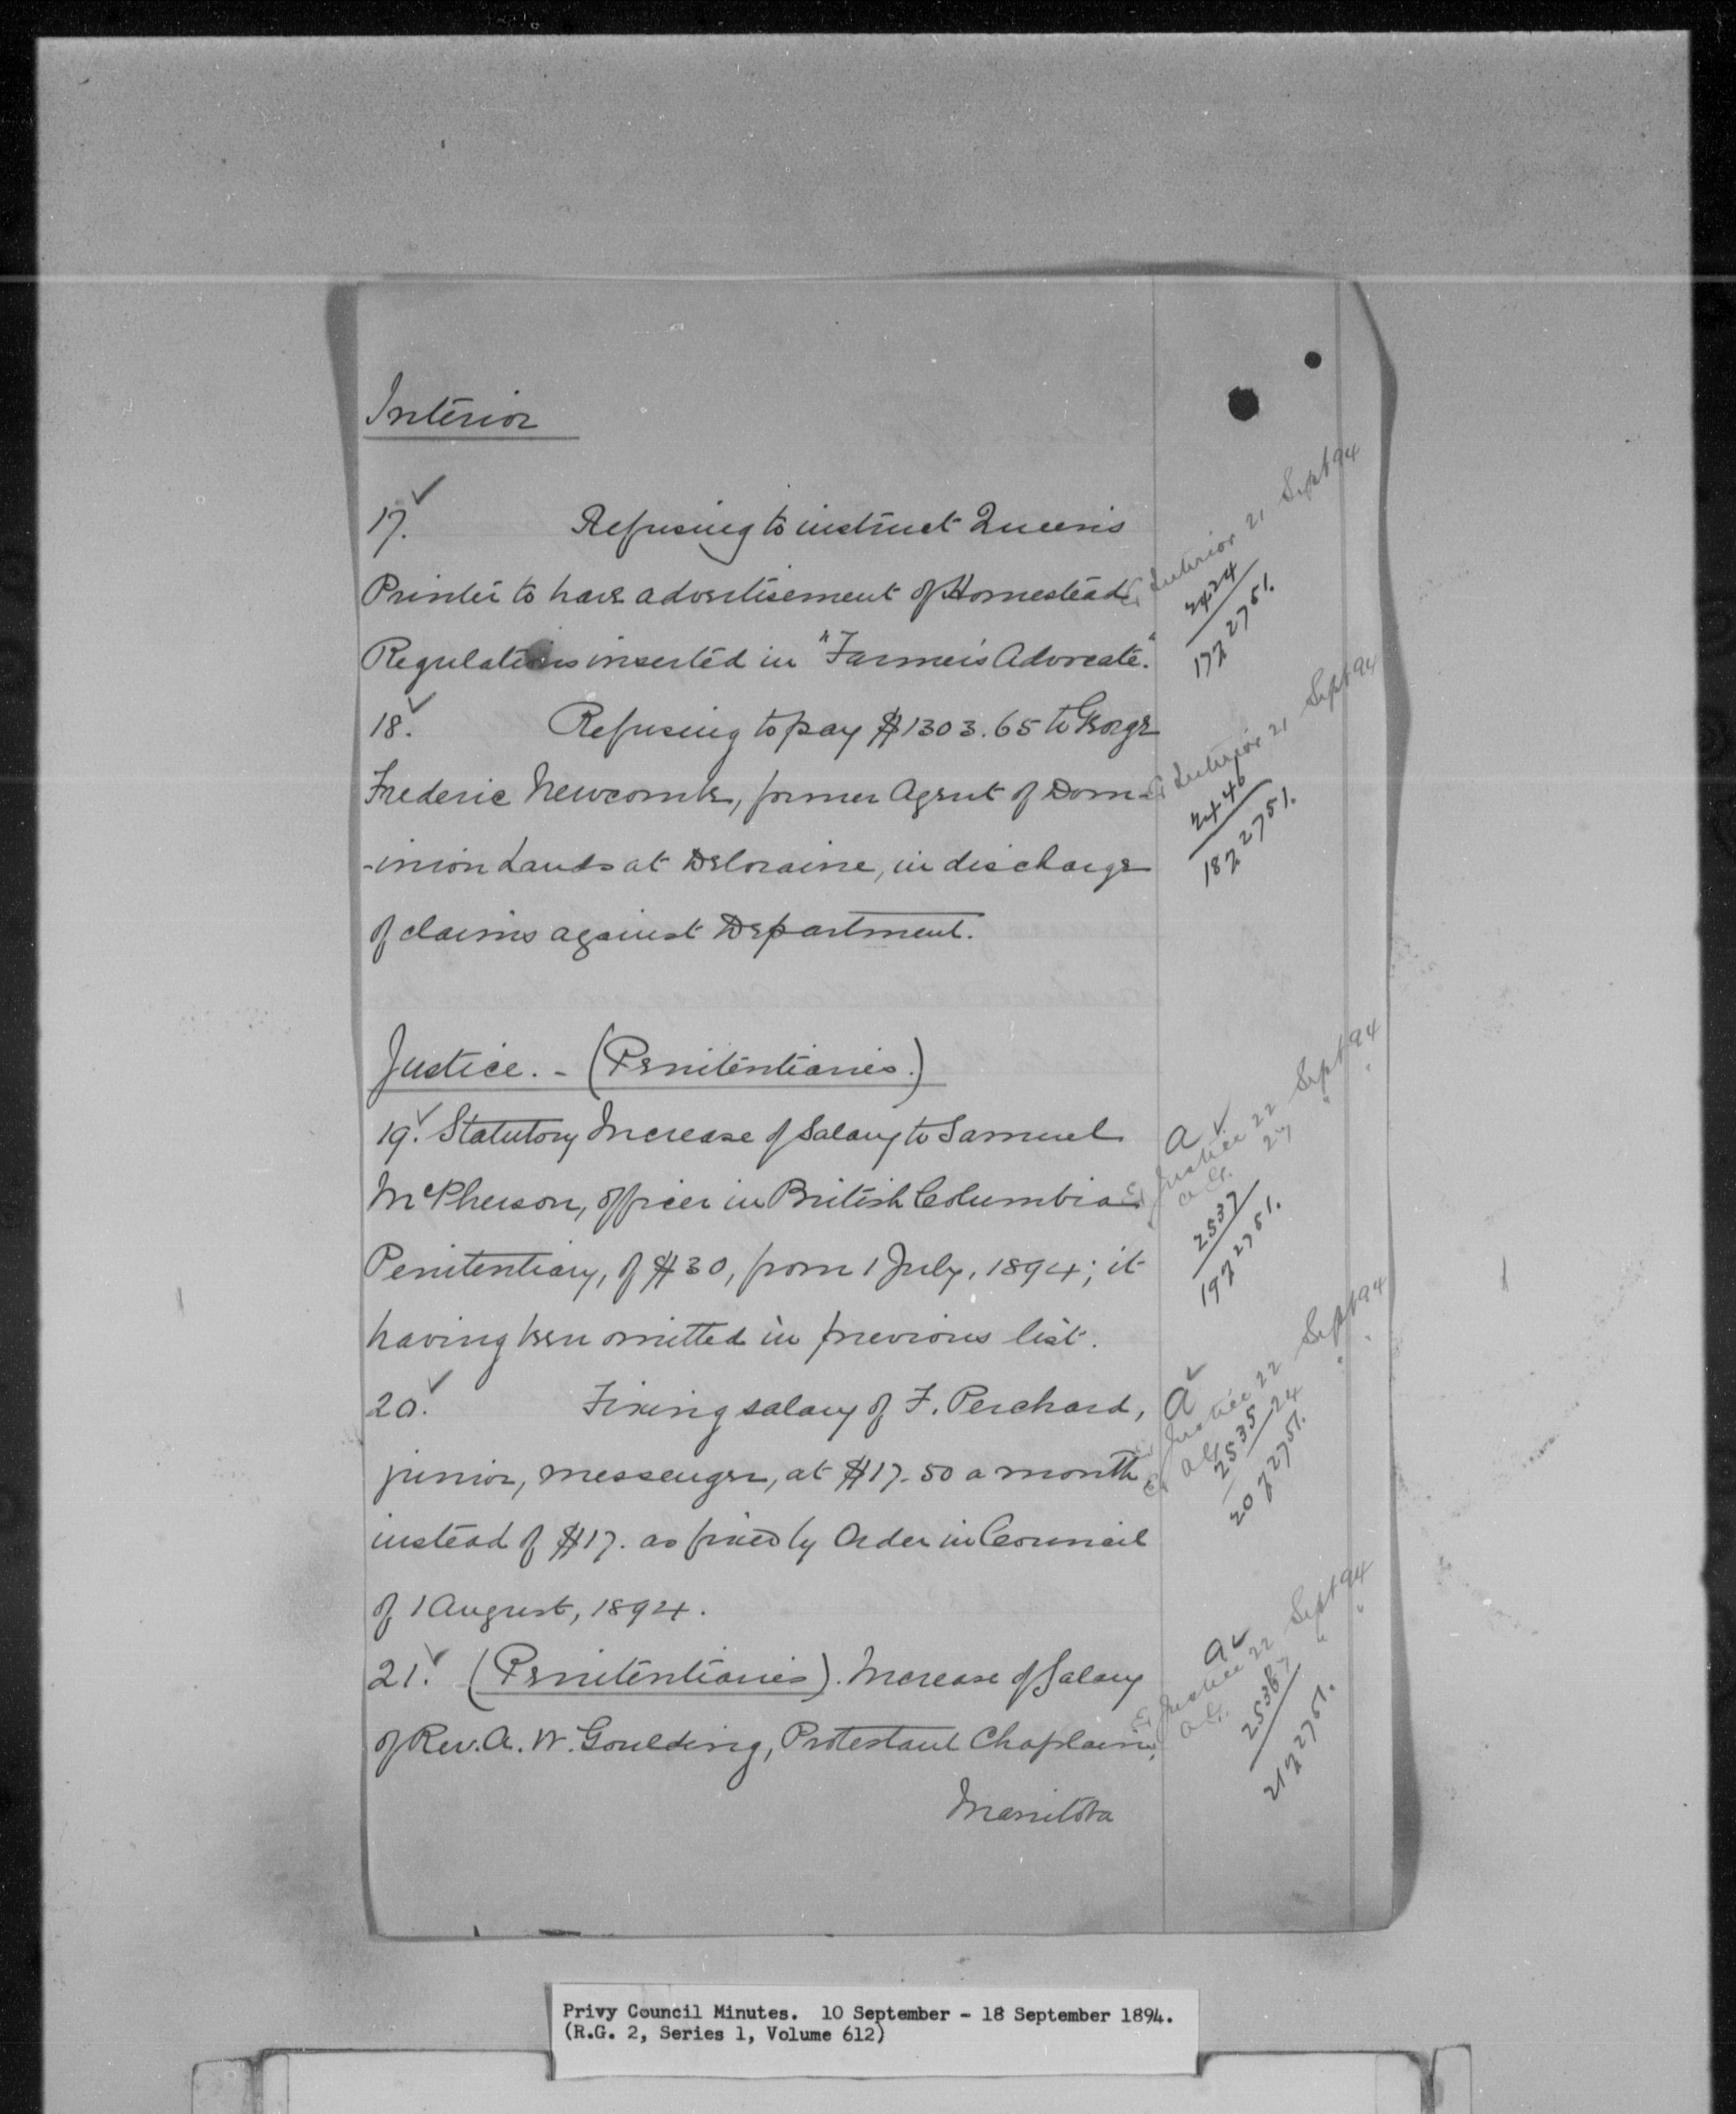 Interior
17.
Refusing to instruct Queen's
Printer to have advertisement of Homestead
Regulations inserted in "Farmer's Advocate."
Interior 21 Sept 94
2424
17/2751.
18.
Refusing to pay $1303.65 to George
Frederic Newcomb, former Agent of Dom-
-inion Lands at Deloraine, in discharge
of claims against Department.
Interior 21 Sept 94
2440
18/2751.
Justice. - (Penitentiaries.)
19. Statutory Increase of Salary to Samuel
McPherson, officer in British Columbia
Penitentiary, of $30, from 1 July, 1894; it
having been omitted in previous list.
a
Justice 22 Sept 94
A.G. 24 " "
2537
19/2751.
20.
Fixing salary of F. Perchard,
junior, messenger, at $17.50 a month
instead of $17. as fixed by Order in Council
of 1 August, 1894.
a
Justice 22 Sept 94
A.G. 24 " "
2535
20/2751.
21. (Penitentiaries). Increase of Salary
of Rev. A. W. Goulding, Protestant Chaplain,
Manitoba
a
Justice 22 Sept 94
A.G. " "
2536
21/2751.
Privy Council Minutes. 10 September - 18 September 1894.
(R.G. 2, Series 1, Volume 612)